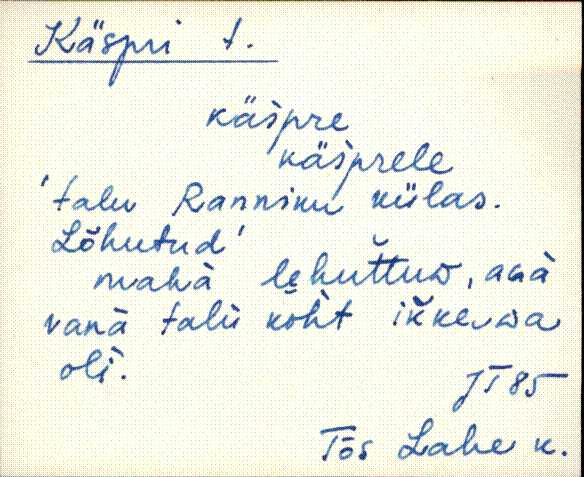 Käspri t.
käspre
käsprele
'talu Ranniku külas.
Lõhutud'
mahà lehuttuD, aaà
vanà talù koht ikkewa
olì.
JT 85
Tõs Lahe k.